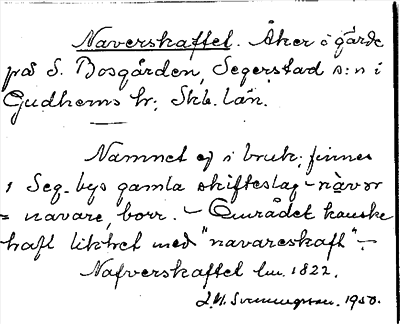 Naverskaftet. Åker o gärde
på S. Bosgården, Segerstad s:n i
Gudhems hr; Skb. län.
Namnet ej i bruk; finnes
i Seg. bys gamla skifteslag - näver
= navare, borr. - Området kanske
haft likhet med "navareskaft" -
Nafverskaftet lm. 1822.
1950.